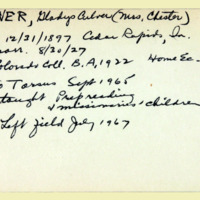 VER, Gladys Culver (Mrs. Chester)
12/21/1897 Cedar Rapids, Ia.
arr. 8/20/27
Colorado Coll. B.A, 1922 Home Ec.
Tarsus Sept 1965
taught Prep reading
+ missionaries' children
Left field July 1967